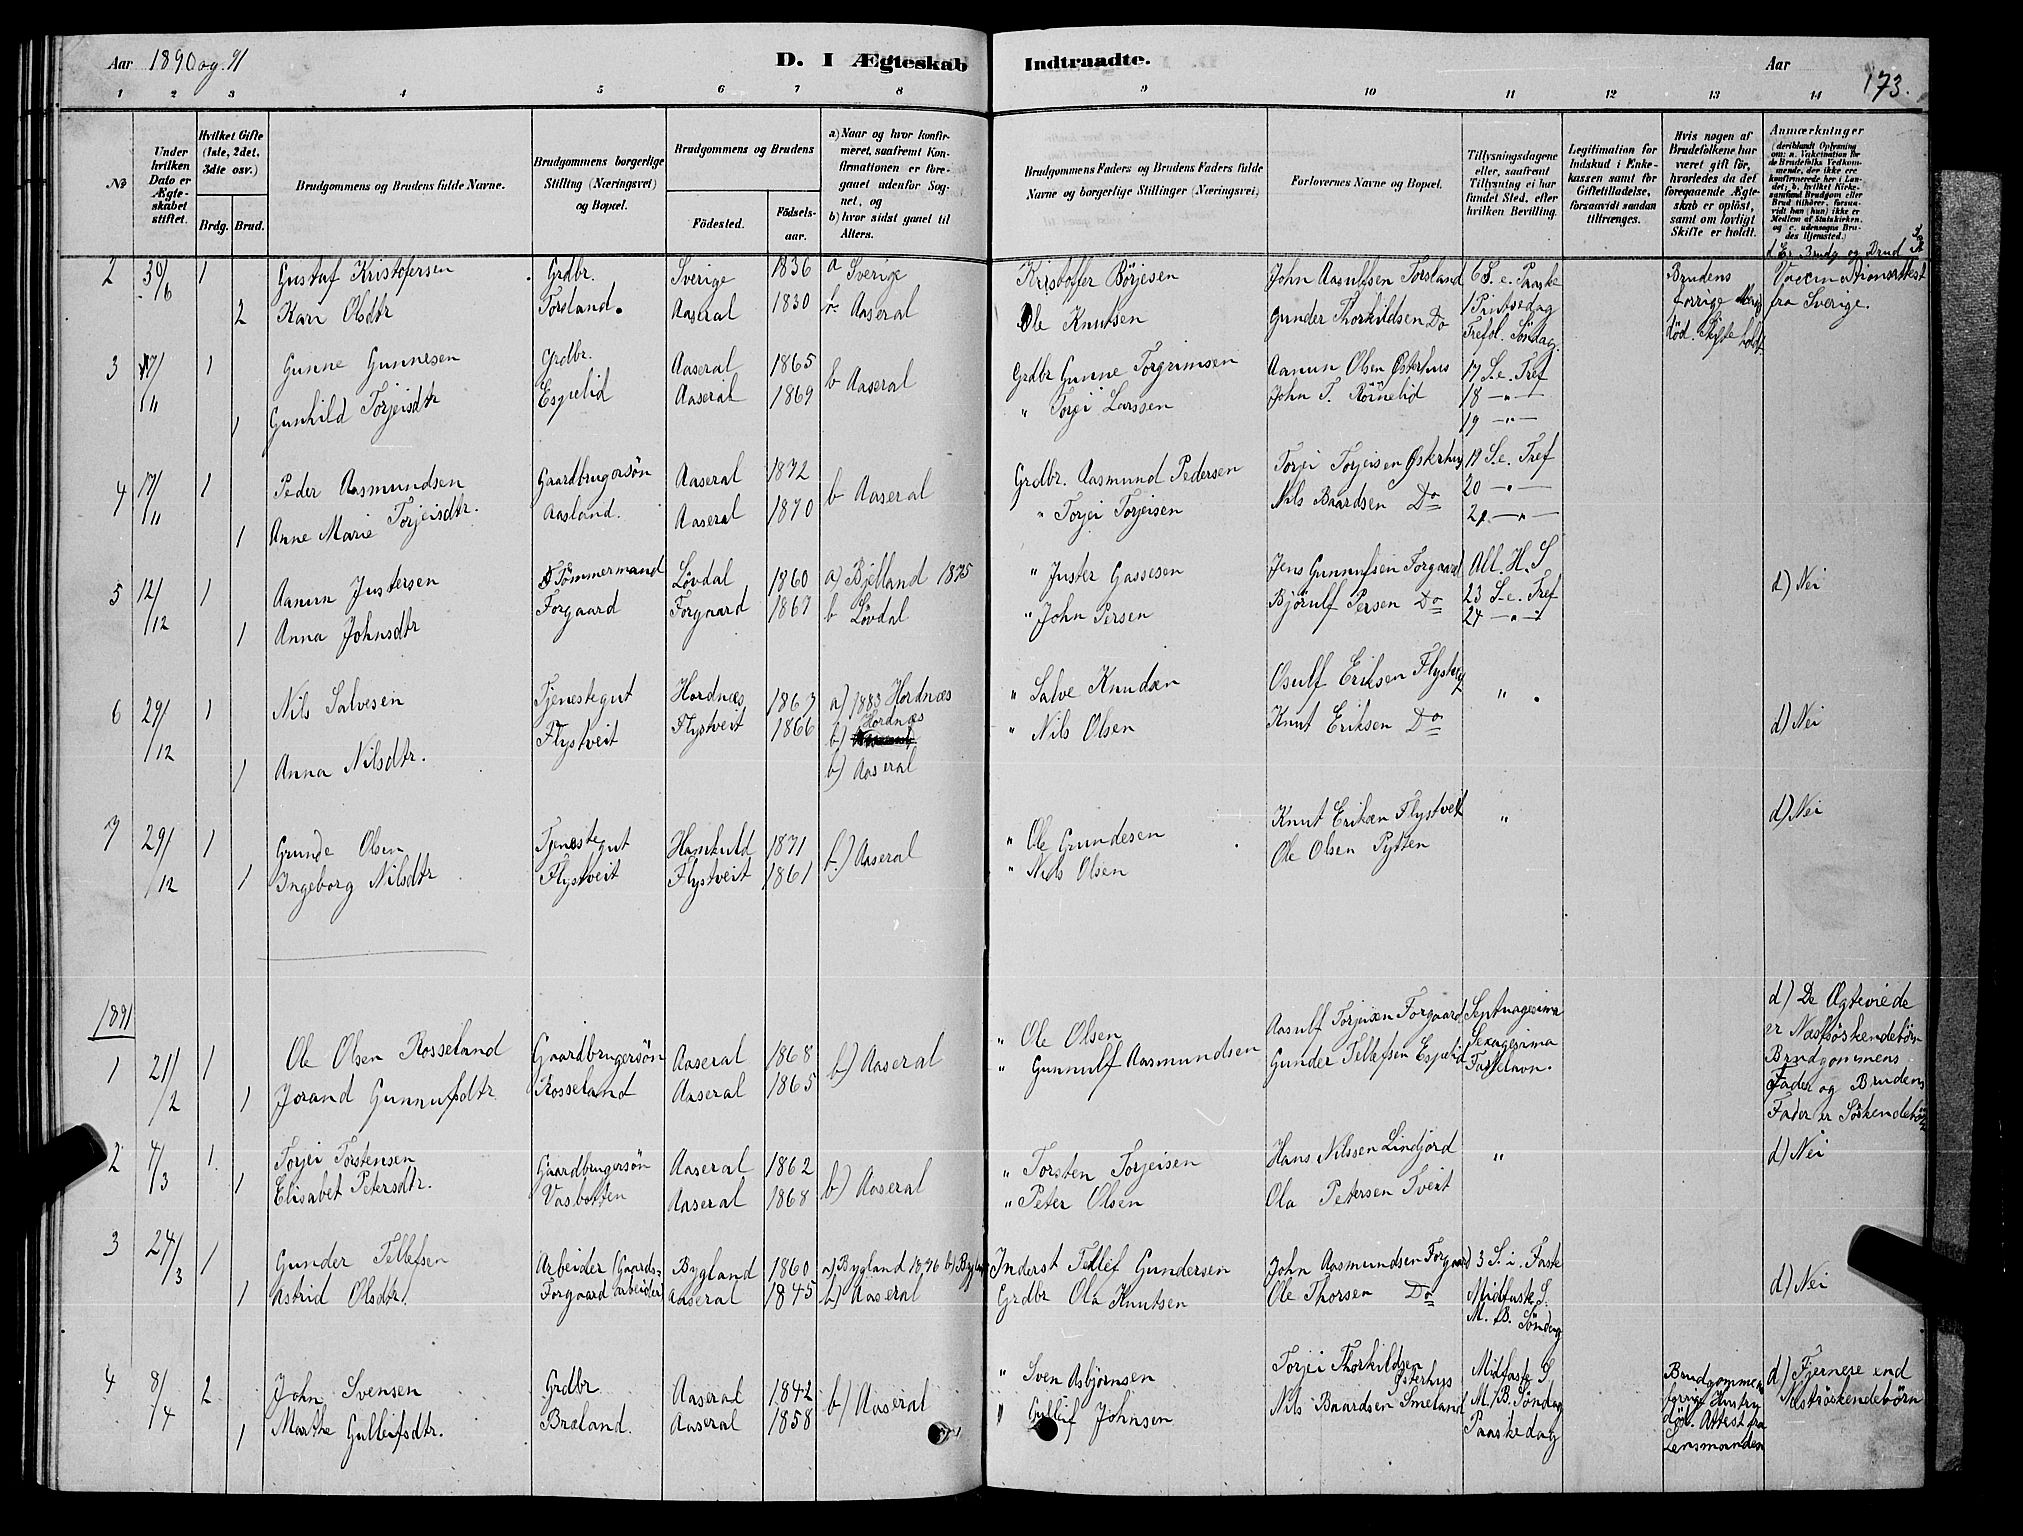 Aar 1890 og 91
D. I Ægteskab Indtraadte.
Aar
173.
1 2 3 4 5 6 7 8 9 10 11 12 13 14
No
Under hvilken Dato er Ægteskabet stiftet.
Hvilket Gifte (1ste, 2det, 3die osv.)
Brdg. Brud.
Brudgommens og Brudens fulde Navne.
Brudgommens borgerlige Stilling (Næringsvei) og Bopæl.
Brudgommens og Brudens
Födested.
Födsels-aar.
a) Naar og hvor konfirmeret, saafremt Konfirmationen er foregaaet udenfor Sognet, og
b) hvor sidst gaaet til Alters.
Brudgommens Faders og Brudens Faders fulde Navne og borgerlige Stillinger (Næringsvei)
Forlovernes Navne og Bopæl.
Tillysningsdagene eller, saafremt Tillysning ei har fundet Sted, efter hvilken Bevilling.
Legitimation for Indskud i Enkekassen samt for Giftetilladelse, forsaavidt saadan tiltrænges.
Hvis nogen af Brudefolkene har været gift för, hvorledes da det foregaaende Ægteskab er oplöst, samt om lovligt Skifte er holdt.
Anmærkninger (deriblandt Oplysning om: a. Vakcination for de Brudefolks Vedkommende, der ikke ere konfirmerede her i Landet; b. hvilket Kirkesamfund Brudgom eller Brud tilhörer, forsaavidt han (hun) ikke er Medlem af Statskirken, og c. udensogns Brudes Hjemsted.)
d Er Brudg og Brud
2 30/6 1 Gustaf Kristofersen Grdbr. Sverige 1836 a Sverige Kristoffer Börjesen John Aasulfsen Forsland 6 S. e. Paaske Brudens Vaccinationsattest
2 Kari Olsdtr Forsland. Aaseral 1830 b. Aaseral Ole Knutsen Gunder Thorkildsen Do 1 Pintsedag forrige fra Sverige.
Trefol. Söndag. död. Skifte holdt
3 17/11 1 Gunne Gunnesen Grdbr. Aaseral 1865 b Aaseral Grdbr Gunne Torgrimsen Aanun Olsen Østerhus 17 S. e. Tref
1 Gunhild Torjeisdtr Espelid Aaseral 1869 " Torjei Larssen John T. Rörnelid 18 — " —
19 — " —
4 17/11 1 Peder Aasmundsen Gaardbrugersön Aaseral 1872 b Aaseral Grdbr. Aasmund Pedersen Torjei Torjeisen Østerhus 19 S. e. Tref
1 Anne Marie Torjeisdtr. Aasland. Aaseral 1870 " Torjei Torjeisen Nils Baardsen Do 20 — " —
21 — " —
5 12/12 1 Aanun Justersen Tömmermand Lövdal 1860 a) Bjelland 1875 " Juster Gassesen Jens Gunnufsen Forgaard All. H. S d) Nei
1 Anna Johnsdtr Forgaard Forgaard 1867 b Lövdal " John Persen Bjørulf Persen Do 23 S. e. Tref
24 — " —
6 29/12 1 Nils Salvesen Tjenestegut Hordnæs 1863 a) 1883 Hordnæs " Salve Knudsen Osulf Eriksen Flystveit " d) Nei
1 Anna Nilsdtr. Flystveit Flystveit 1866 b) Hordnæs " Nils Olsen Knut Eriksen Do
b) Aaseral
7 29/12 1 Grunde Olsen Tjenestegut Hamkuld 1871 b.) Aaseral " Ole Grundesen Knut Eriksen Flystveit " d) Nei
1 Ingeborg Nilsdtr Flystveit Flystveit 1861 " Nils Olsen Ole Olsen Pytten
1891
1 21/2 1 Ole Olsen Rosseland Gaardbrugersön Aaseral 1868 b) Aaseral " Ole Olsen Aasulf Torjeisen Forgaard Septuagesima d) De Ægteviede
1 Jorand Gunnufsdtr Rosseland Aaseral 1865 " Gunnulf Aasmundsen Gunder Tellefsen Espelid Sexagesima er Næstsöskendebörn
Fastelavn. Brudgommens
Fader og Brudens
Fader er Söskendebörn
2 4/3 1 Torjei Torstensen Gaardbrugersön Aaseral 1862 b) Aaseral " Torsten Torjeisen Hans Nilssen Lindjord " d) Nei
1 Elisabet Petersdtr. Vasbotten Aaseral 1868 " Peter Olsen Ola Petersen Tveit
3 24/3 1 Gunder Tellefsen Arbeider (Gaards- Bygland 1860 a) Bygland 1876 b) Bygland Inderst Tellef Gundersen John Aasmundsen Forgaard 3 S. i. Faste d) Nei
1 Astrid Olsdtr. Forgaard arbeider) Aaseral 1845 b) Aaseral Grdbr Ola Knutsen Ole Thorsen Do Midfaste S.
M. B. Söndag
4 8/4 2 John Svensen Grdbr Aaseral 1842 b) Aaseral " Sven Asbjørnsen Torjei Thorkildsen Østerhus Midfaste S. Brudgommens d) Fjernere end
1 Marthe Gulleifsdtr. Braland. Aaseral 1858 " Gulleif Johnsen Nils Baardsen Smeland M. B. Söndag forrige Hustru Næstsöskendebörn
Paaskedag död. Attest fra
Lensmanden